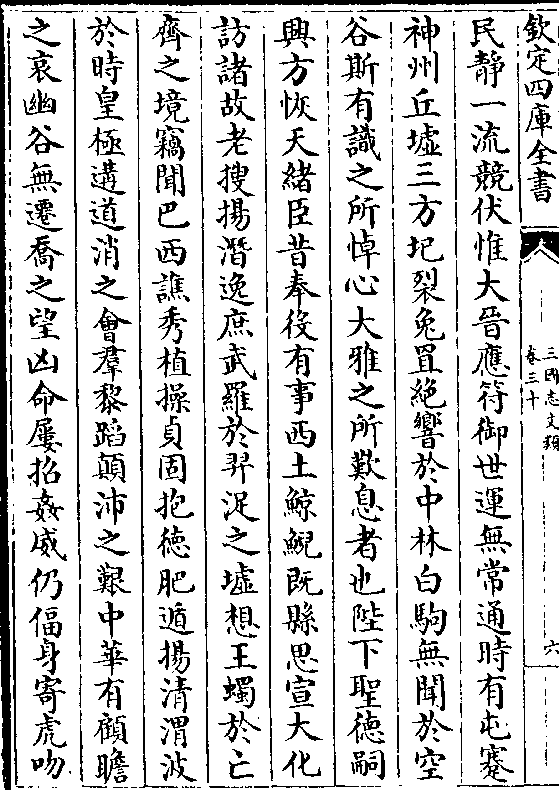 欽定四庫全書
三國志文類
卷三十
六
民靜一流競伏惟大晉應符御世運無常通時有屯蹇
神州丘墟三方圮裂兔罝絶響於中林白駒無聞於空
谷斯有識之所悼心大雅之所歎息者也陛下聖德嗣
興方恢天緒臣昔奉役有事西土鯨鯢既縣思宣大化
訪諸故老搜揚潛逸庶武羅於羿浞之墟想王蠋於亡
齊之境竊聞巴西譙秀植操貞固抱德肥遁揚清渭波
於時皇極遘道消之會羣黎蹈顛沛之艱中華有顧瞻
之哀幽谷無遷喬之望凶命屢招姦威仍偪身寄虎吻